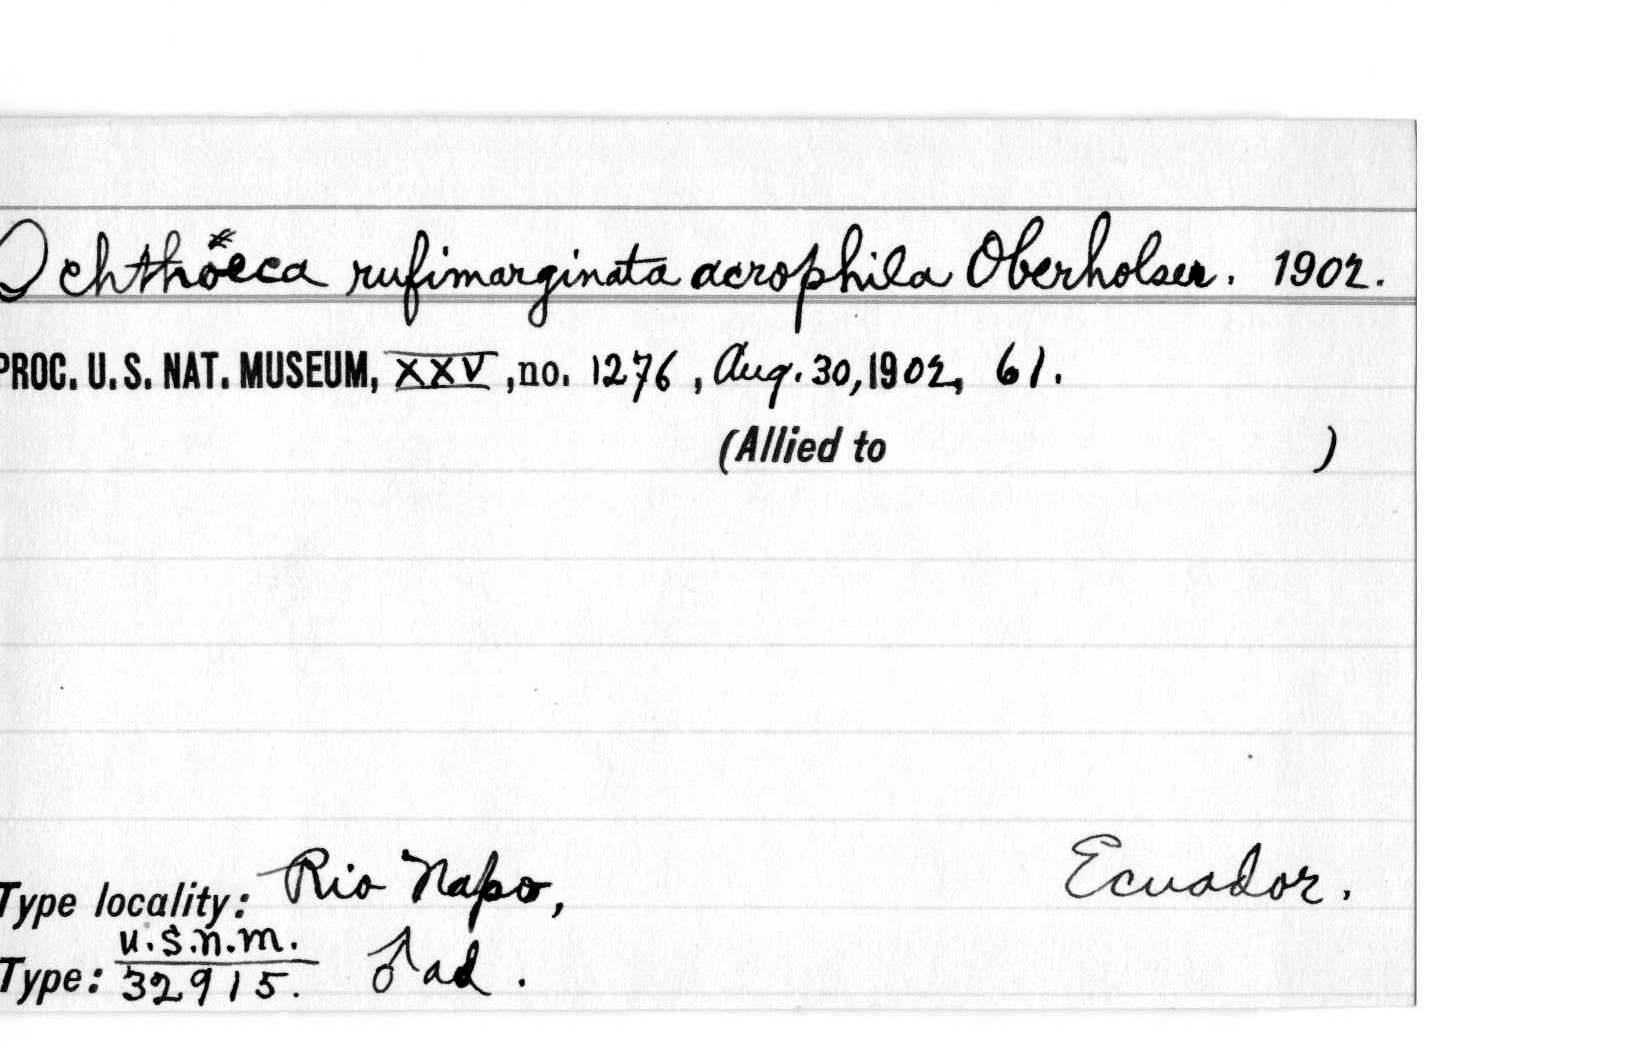 Ochthöeca rufimarginata acrophila Oberholser. 1902.
PROC. U. S. NAT. MUSEUM, XXV, no. 1276, Aug. 30, 1902, 61.
(Allied to )
Type locality: Rio Napo, Ecuador.
Type: U.S.N.M. 32915. ♂ ad.